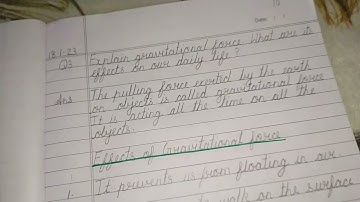 10
Date :
18.1.23
Q3 Explain gravitational force. What are it
effects on our daily life?
Ans The pulling force exerted by the earth
on objects is called gravitational force
It is acting all the time on all the
objects.
Effects of Gravitational force
1. It prevents us from floating in air.
walk on the surface